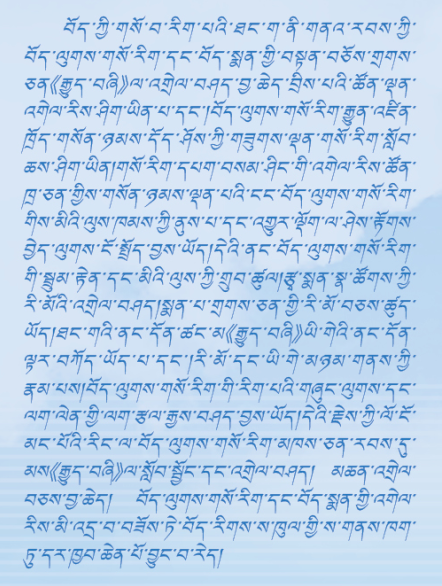 བོད་ཀྱི་གསོ་བ་རིག་པའི་ཐང་ག་ནི་གནའ་རབས་ཀྱི་
བོད་ལུགས་གསོ་རིག་དང་བོད་སྨན་གྱི་བསྟན་བཅོས་གྲགས་
ཅན《རྒྱུད་བཞི》ལ་འགྲེལ་བཤད་བྱ་ཆེད་བྲིས་པའི་ཚོན་ལྡན་
འགྲེལ་རིས་ཤིག་ཡིན་པ་དང་།བོད་ལུགས་གསོ་རིག་རྒྱུན་འཛིན་
ཁྲོད་གསོན་ཉམས་དོད་ཤོས་ཀྱི་གཟུགས་ལྡན་གསོ་རིག་སློབ་
ཆས་ཤིག་ཡིན།གསོ་རིག་དཔག་བསམ་ཤིང་གི་འགྲེལ་རིས་ཚོན་
ཁྲ་ཅན་གྱིས་གསོན་ཉམས་ལྡན་པའི་ངང་བོད་ལུགས་གསོ་རིག་
གིས་མིའི་ལུས་ཁམས་ཀྱི་ནུས་པ་དང་འགྱུར་ལྡོག་ལ་ཤེས་རྟོགས་
བྱེད་ལུགས་ངོ་སྤྲོད་བྱས་ཡོད།དེའི་ནང་བོད་ལུགས་གསོ་རིག་
གི་སྒྲུམ་རྟེན་དང་མིའི་ལུས་ཀྱི་གྲུབ་ཚུལ།རྩྭ་སྨན་སྣ་ཚོགས་ཀྱི་
རི་མོའི་འགྲེལ་བཤད།སྨན་པ་གྲགས་ཅན་གྱི་རི་མོ་བཅས་ཚུད་
ཡོད།ཐང་གའི་ནང་དོན་ཚང་མ《རྒྱུད་བཞི》ཡི་གེའི་ནང་དོན་
ལྟར་བཀོད་ཡོད་པ་དང་།རི་མོ་དང་ཡི་གེ་མཉམ་གནས་ཀྱི་
རྣམ་པས།བོད་ལུགས་གསོ་རིག་གི་རིག་པའི་གཞུང་ལུགས་དང་
ལག་ལེན་གྱི་ལག་རྩལ་རྒྱས་བཤད་བྱས་ཡོད།དེའི་རྗེས་ཀྱི་ལོ་ངོ་
མང་པོའི་རིང་ལ་བོད་ལུགས་གསོ་རིག་མཁས་ཅན་རབས་དུ་
མས《རྒྱུད་བཞི》ལ་སློབ་སྦྱོང་དང་འགྲེལ་བཤད། མཆན་འགྲེལ་
བཅས་བྱ་ཆེད། བོད་ལུགས་གསོ་རིག་དང་བོད་སྨན་གྱི་འགྲེལ་
རིས་མི་འདྲ་བ་བཟོས་ཏེ་བོད་རིགས་ས་ཁུལ་གྱི་ས་གནས་ཁག་
ཏུ་དར་ཁྱབ་ཆེན་པོ་བྱུང་བ་རེད།